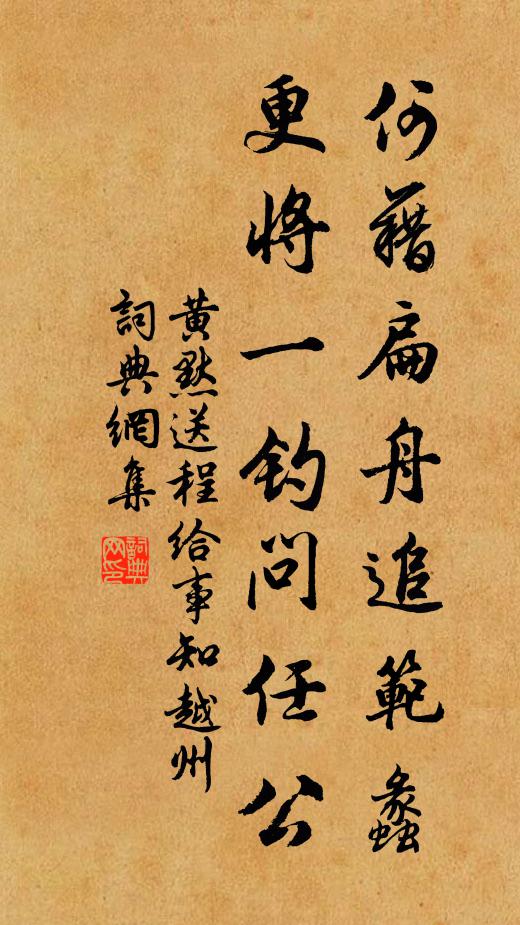 何藉扁舟追範蠡
更將一釣問任公
黃默送程給事知越州
詞典網集
詞典網印